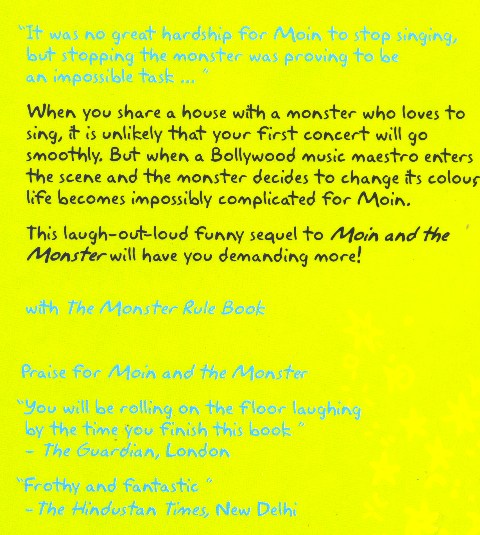 "It was no great hardship for Moin to stop singing,
but stopping the monster was proving to be
an impossible task ... "
When you share a house with a monster who loves to
sing, it is unlikely that your first concert will go
smoothly. But when a Bollywood music maestro enters
the scene and the monster decides to change its colour,
life becomes impossibly complicated for Moin.
This laugh-out-loud funny sequel to Moin and the
Monster will have you demanding more!
with The Monster Rule Book
Praise for Moin and the Monster
"You will be rolling on the floor laughing
by the time you finish this book "
- The Guardian, London
"Frothy and fantastic "
- The Hindustan Times, New Delhi